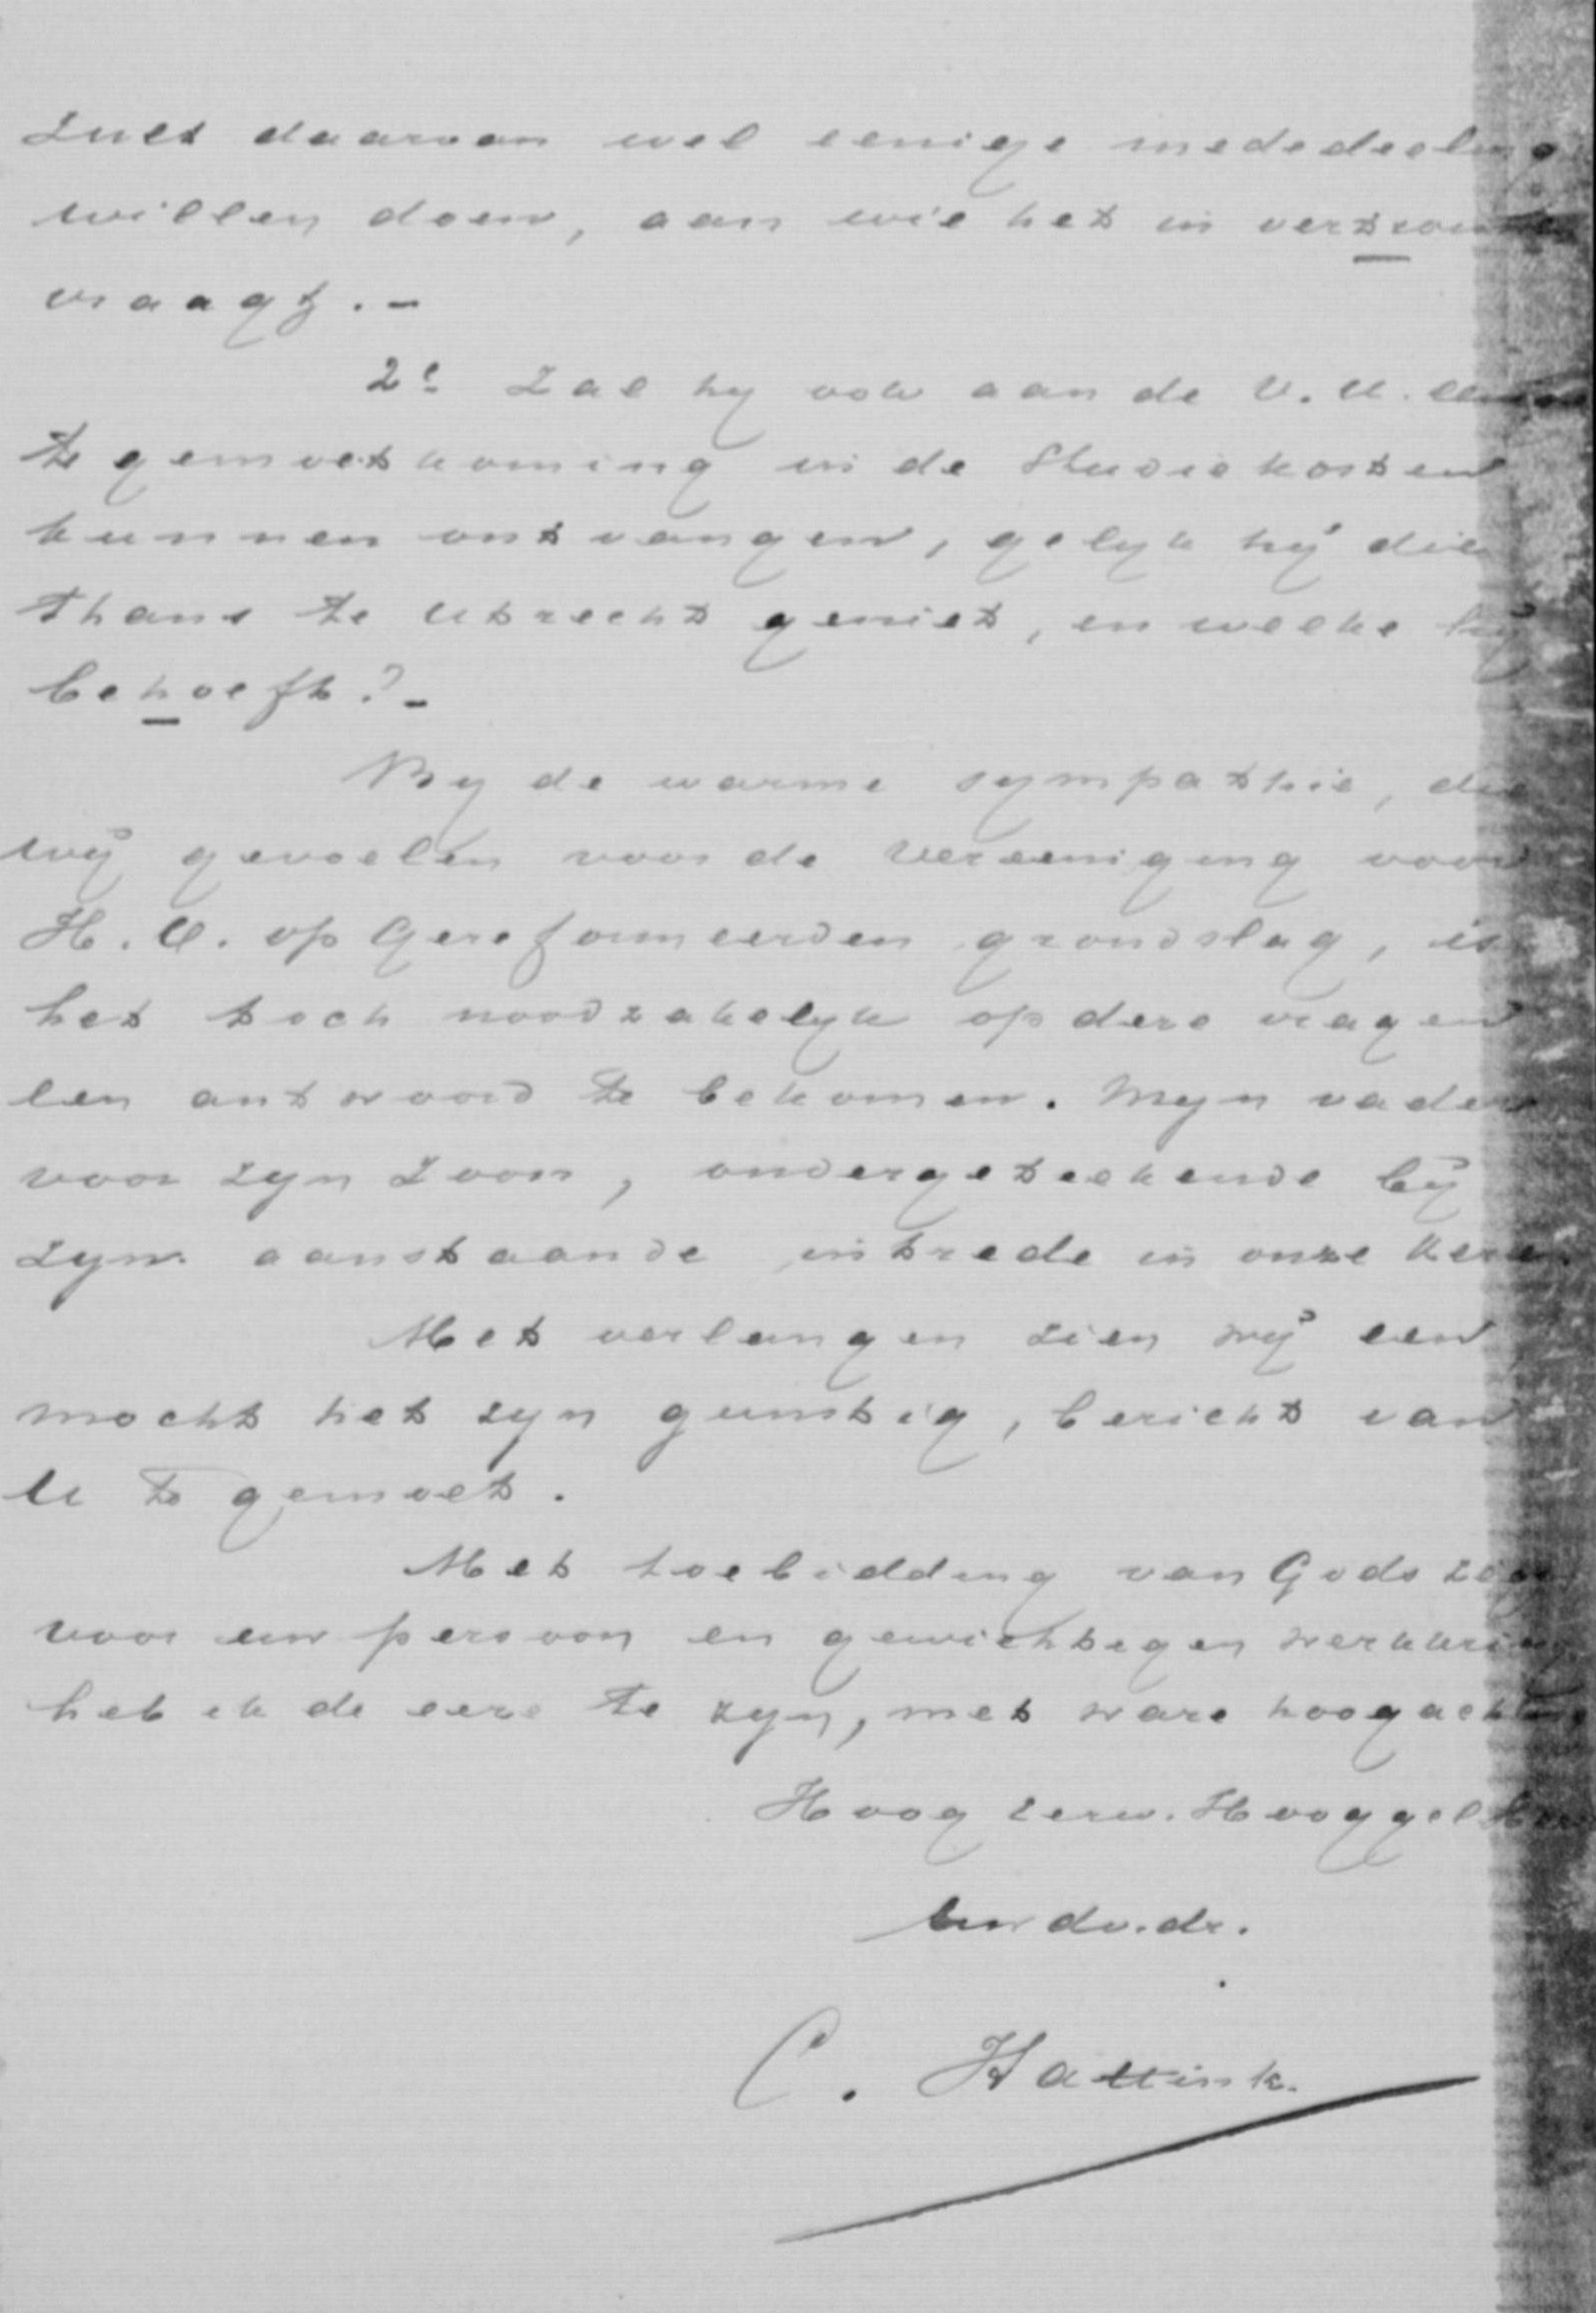 zult daarvan wel eenige mededeeling
willen doen, aan wie het in vertrouwen
vraagt. -
2e Zal hy ook aan de V. U. eene
te gemoetkoming in de Studiekosten
kunnen ontvangen, gelyk hij die
thans te Utrecht geniet, en welke hij
behoeft? -
By de warme sympathie, die
wij gevoelen voor de Vereeniging voor
H. O. op Gereformeerden grondslag, is
het toch noodzakelyk op deze vragen
een antwoord te bekomen. Myn vader
voor zyn Zoon, ondergeteekende bij
zyn aanstaande intrede in onze Kerk.
Met verlangen zien wij een,
mocht het zyn gunstig, bericht van
U te gemoet.
Met toebidding van Gods zegen
voor uw persoon en gewichtigen werkkring
heb ik de eere te zyn, met ware hoogachting
Hoog Eerw. HoogGel
Uw dv. dr.
C. Hattink.